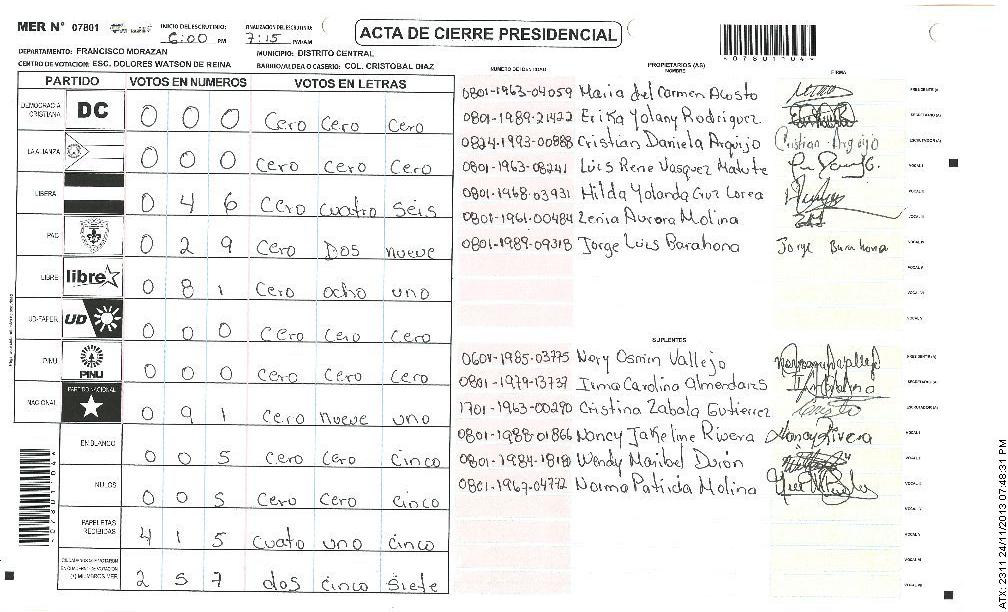 MER N° 07801
INICIO DEL ESCRUTINIO: 6:00 PM
FINALIZACION DEL ESCRUTINIO: 7:15 PM/AM
ACTA DE CIERRE PRESIDENCIAL
*07801104*
DEPARTAMENTO: FRANCISCO MORAZAN
MUNICIPIO: DISTRITO CENTRAL
CENTRO DE VOTACION: ESC. DOLORES WATSON DE REINA
BARRIO/ALDEA O CASERIO: COL. CRISTOBAL DIAZ
PARTIDO VOTOS EN NUMEROS VOTOS EN LETRAS
DEMOCRACIA CRISTIANA DC 0 0 0 Cero Cero Cero
LA ALIANZA 0 0 0 Cero Cero Cero
LIBERAL 0 4 6 Cero cuatro seis
PAC 0 2 9 Cero Dos nueve
LIBRE libre 0 8 1 Cero ocho uno
UD-FAPER UD 0 0 0 Cero Cero Cero
PINU PINU 0 0 0 Cero Cero Cero
NACIONAL PARTIDO NACIONAL 0 9 1 Cero nueve uno
EN BLANCO 0 0 5 Cero Cero Cinco
NULOS 0 0 5 Cero Cero Cinco
PAPELETAS RECIBIDAS 4 1 5 cuatro uno cinco
(+) MIEMBROS MER 2 5 7 dos cinco siete
*07801104*
NUMERO DE IDENTIDAD PROPIETARIOS (AS) NOMBRE FIRMA
0801-1963-04059 Maria del Carmen Acosto PRESIDENTE (A)
0801-1989-21422 Erika Yolany Rodriguez SECRETARIO (A)
0824-1993-00888 Cristian Daniela Arguijo Cristian Arguijo ESCRUTADOR (A)
0801-1963-08241 Luis Rene Vasquez Matute VOCAL I
0801-1968-03931 Hilda Yolanda Cruz Lorea VOCAL II
0801-1961-00484 Zenia Aurora Molina VOCAL III
0801-1989-09318 Jorge Luis Barahona Jorge Barahona VOCAL IV
VOCAL V
VOCAL VI
VOCAL VII
SUPLENTES
0601-1985-03775 Nery Osmin Vallejo PRESIDENTE (A)
0801-1979-13737 Irma Carolina Almendares SECRETARIO (A)
1701-1963-00290 Cristina Zabala Gutierrez ESCRUTADOR (A)
0801-1988-01866 Nancy Jakeline Rivera Nancy Rivera VOCAL I
0801-1984-1818 Wendy Maribel Durón VOCAL II
0801-1967-04772 Norma Patricia Molina VOCAL III
VOCAL IV
VOCAL V
VOCAL VI
VOCAL VII
ATX: 2311 24/11/2013 07:48:31 PM